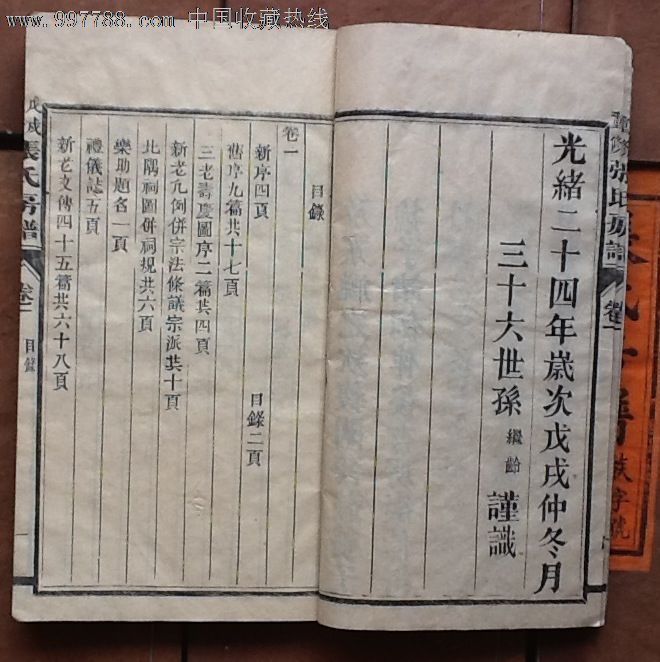 www.997788.com 中国收藏热线
光緒二十四年歲次戊戌仲冬月
三十六世孫 繼齡 謹識
目錄
卷一
新序四頁 目錄二頁
舊序九篇共十七頁
三老壽慶圖序二篇共四頁
新老凡例併宗法條議宗派共十頁
北隅祠圖併祠規共六頁
樂助題名一頁
禮儀誌五頁
新老文傳四十五篇共六十八頁
戊戌 張氏房譜 卷一 目錄 一
張氏房譜 卷一
譜
字號